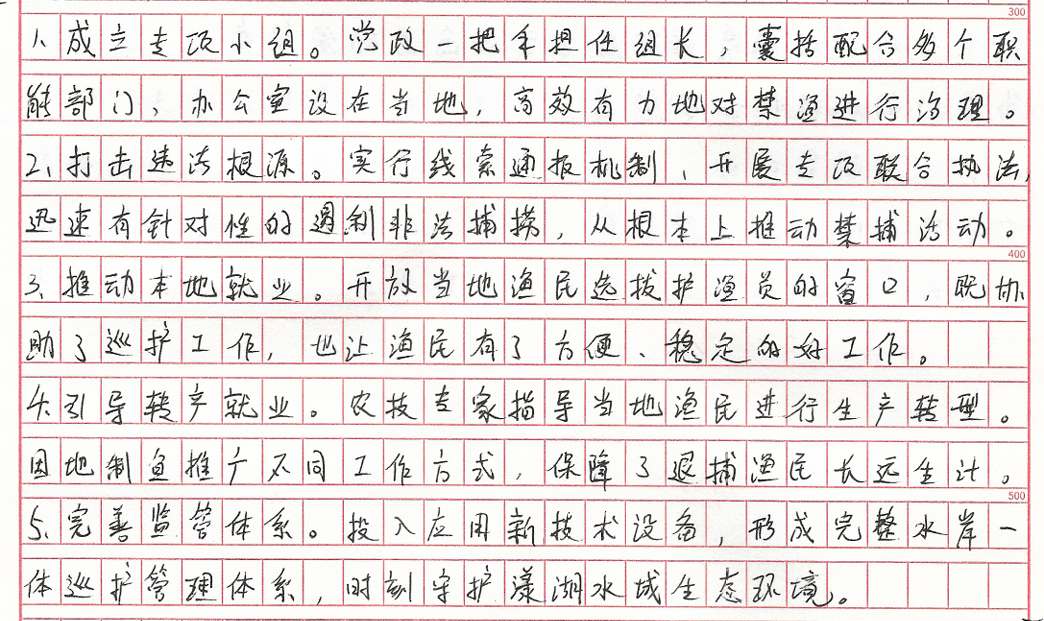 300
1、成立专项小组。党政一把手担任组长，囊括配合多个职
能部门，办公室设在当地，高效有力地对禁渔进行治理。
2、打击违法根源。实行线索通报机制，开展专项联合执法，
迅速有针对性的遏制非法捕捞，从根本上推动禁捕活动。
400
3、推动本地就业。开放当地渔民选拔护渔员的窗口，既协
助了巡护工作，也让渔民有了方便、稳定的好工作。
4、引导转产就业。农技专家指导当地渔民进行生产转型。
因地制鱼推广不同工作方式，保障了退捕渔民长远生计。
500
5、完善监管体系。投入应用新技术设备，形成完整水岸一
体巡护管理体系，时刻守护漾湖水域生态环境。